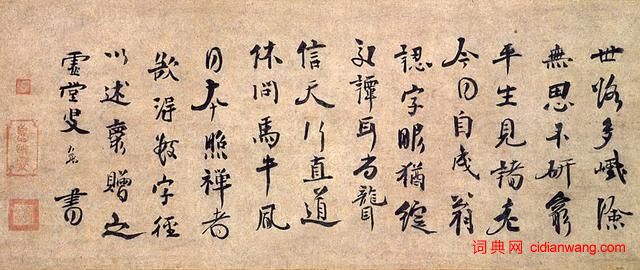 世路多巇險
無思不研窮
平生見諸老
今日自成翁
認字眼猶綻
交譚耳尚聾
信天行直道
休問馬牛風
日本照禪者
欲得數字徑
以述懷贈之
虛堂叟書
词典网 cidianwang.com